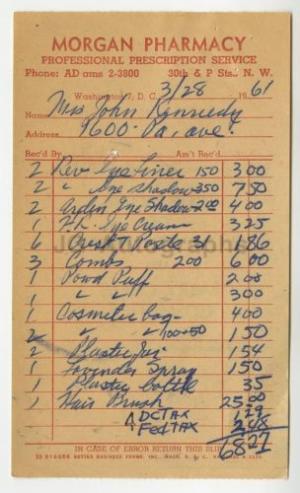 MORGAN PHARMACY
PROFESSIONAL PRESCRIPTION SERVICE
Phone: AD ams 2-3800 30th & P Sts., N. W.
Washington 7, D. C., 3/28 1961
Name Mrs John Kennedy
Address 1600 Pa. ave.
Rec'd By Am't Rec'd
2 Rev Eye Liner 150 3 00
2 " Eye Shadow 350 7 50
2 Arden Eye Shadow 200 4 00
1 Eye Cream 3 25
6 Paste 31 1 86
3 Combs 200 6 00
1 Powd Puff 2 00
1 " " 3 00
1 Cosmetic Bag 4 00
2 " " 100+50 1 50
2 Plastic Jar 1 54
1 Lavender Spray 1 50
1 Plastic bottle 35
1 Hair Brush 25.00
DC TAX 1 29
Fed TAX 2 48
68 27
IN CASE OF ERROR RETURN THIS SLIP